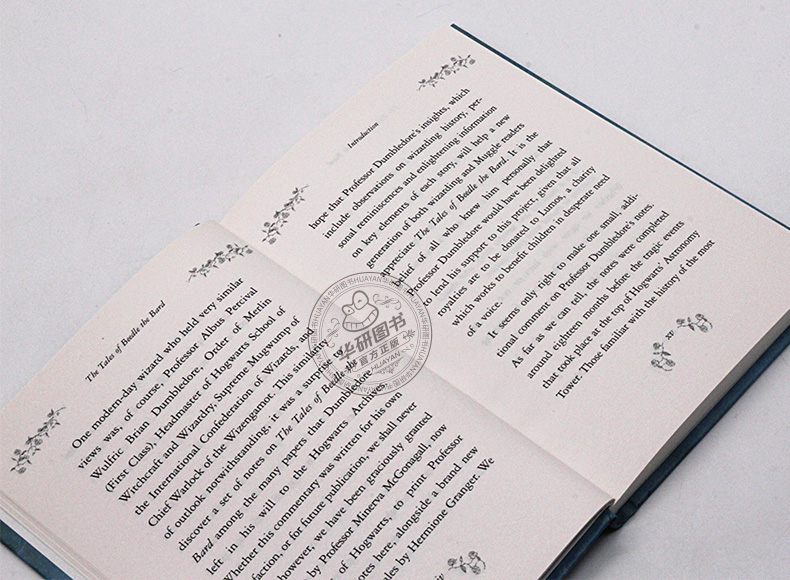 The Tales of Beedle the Bard
One modern-day wizard who held very similar
views was, of course, Professor Albus Percival
Wulfric Brian Dumbledore, Order of Merlin
(First Class), Headmaster of Hogwarts School of
Witchcraft and Wizardry, Supreme Mugwump of
the International Confederation of Wizards, and
Chief Warlock of the Wizengamot. This
of outlook notwithstanding, it was a surprise
discover a set of notes on The Tales of Beedle the
Bard among the many papers that Dumbledore
left in his will to the Hogwarts Archives.
Whether this commentary was written for his own
faction, or for future publication, we shall never
however, we have been graciously granted
by Professor Minerva McGonagall, now
of Hogwarts, to print Professor
notes here, alongside a brand new
ales by Hermione Granger. We
iv
Introduction
hope that Professor Dumbledore's insights, which
include observations on wizarding history, per-
sonal reminiscences and enlightening information
on key elements of each story, will help a new
generation of both wizarding and Muggle readers
appreciate The Tales of Beedle the Bard. It is the
belief of all who knew him personally that
Professor Dumbledore would have been delighted
to lend his support to this project, given that all
royalties are to be donated to Lumos, a charity
which works to benefit children in desperate need
of a voice.
It seems only right to make one small, addi-
tional comment on Professor Dumbledore's notes.
As far as we can tell, the notes were completed
around eighteen months before the tragic events
that took place at the top of Hogwarts' Astronomy
Tower. Those familiar with the history of the most
xv
华研图书
官方正版
HUAYAN